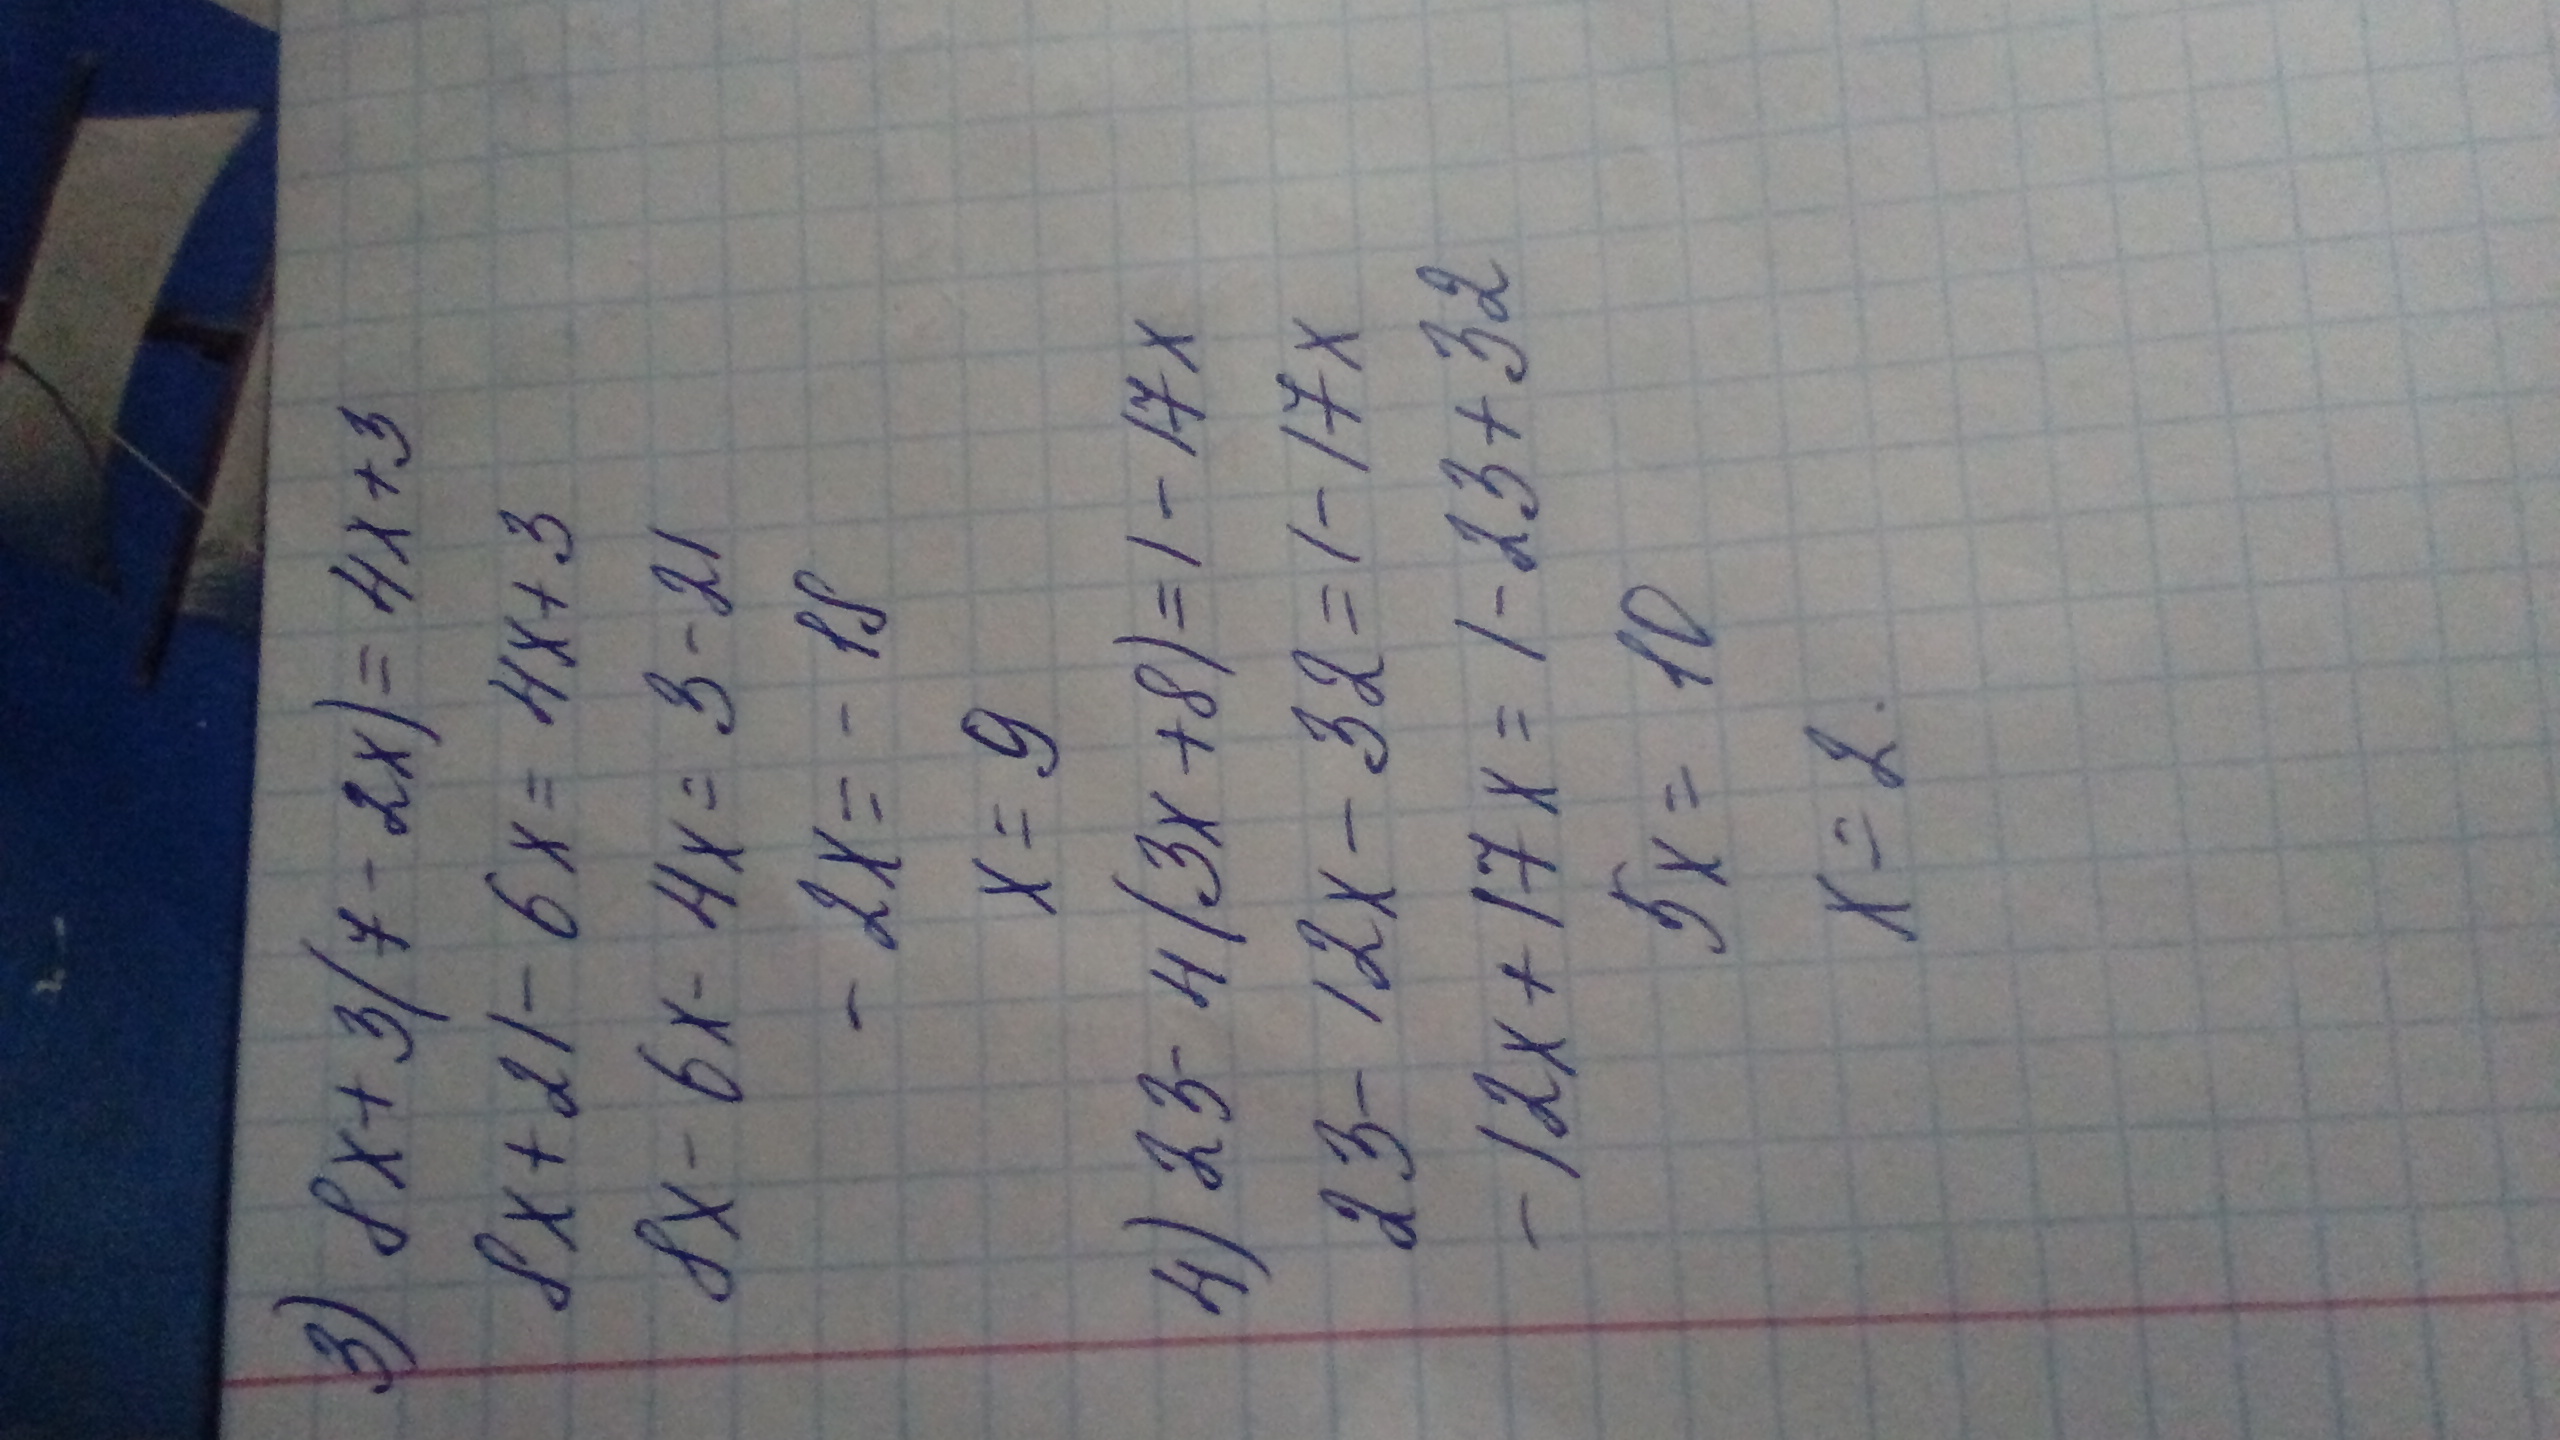 3) 8x+3(7-2x)=4x+3
8x+21-6x=4x+3
8x-6x-4x=3-21
-2x=-18
x=9
4) 23-4(3x+8)=1-17x
23-12x-32=1-17x
-12x+17x=1-23+32
5x=10
x=2.